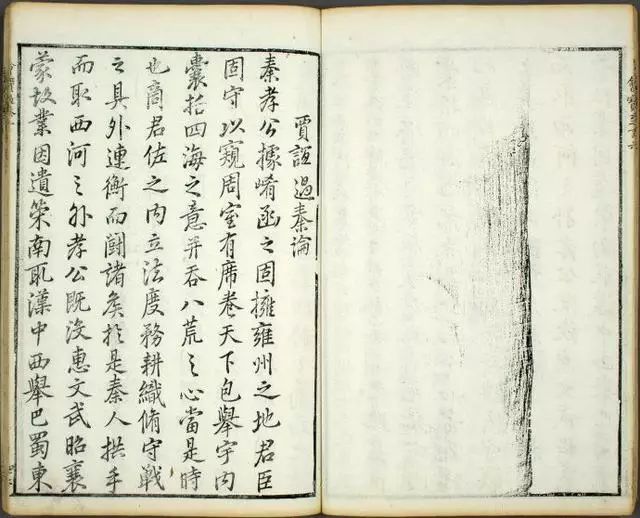 賈誼過秦論
秦孝公據崤函之固擁雍州之地君臣
固守以窺周室有席卷天下包舉宇內
囊括四海之意并吞八荒之心當是時
也商君佐之內立法度務耕織脩守戰
之具外連衡而鬪諸矦於是秦人拱手
而取西河之外孝公既沒惠文武昭襄
蒙故業因遺策南取漢中西舉巴蜀東